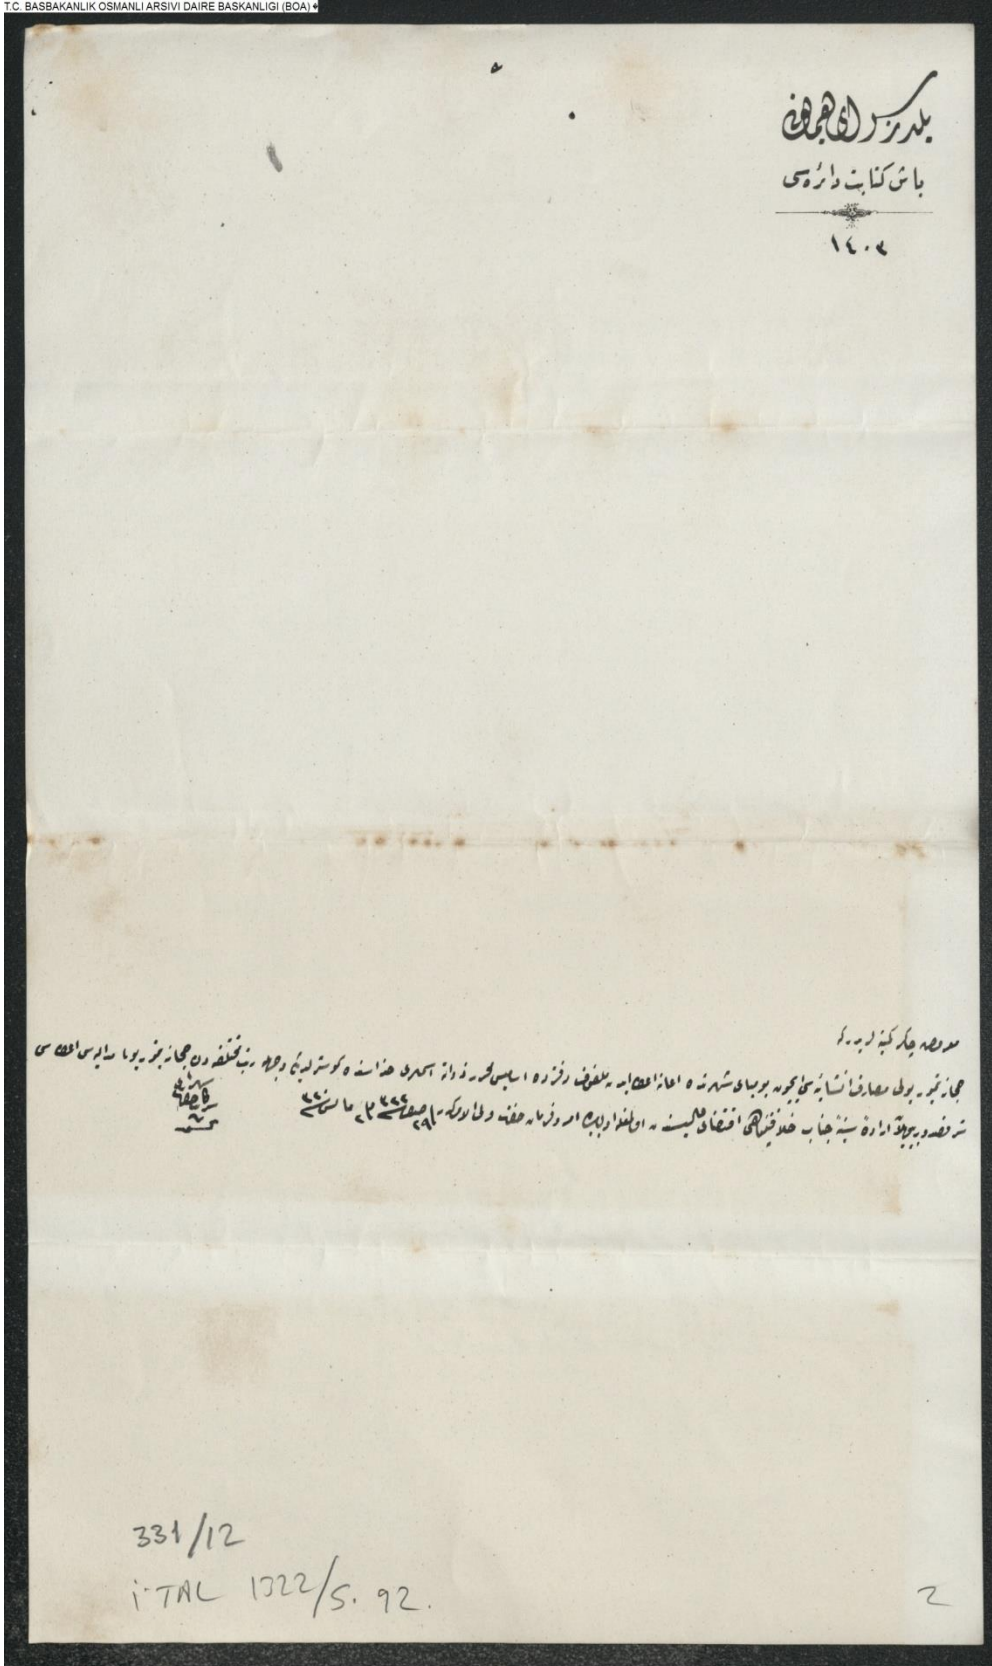 T.C. BASBAKANLIK OSMANLI ARSIVI DAIRE BASKANLIGI (BOA)
يلدز سراى همايونى
باش كتابت دائره‌سى
١٤٠٣
معروض چاكر كمينه‌لريدر كه
حجاز تيمور يولى مصارف انشائيه‌سى ايچون بومباى شهرنده اعانه اعطا ايدن ملفوف دفترده اساميسى محرر ذواته اسملرى حذاسنده كوسترلديكى وجهله رتب مختلفه‌دن حجاز تيمور يولى مداليه‌سى اعطاسى
شرفصدور بيوريلان اراده سنيه جناب خلافتپناهى اقتضاى عاليسندن اولمغله اولبابده امر و فرمان حضرت ولى الامركدر ٢٩ صفر ٣٢٢ مايس ٣٢٠
331/12
İ-TAL 1322/S. 92.
2